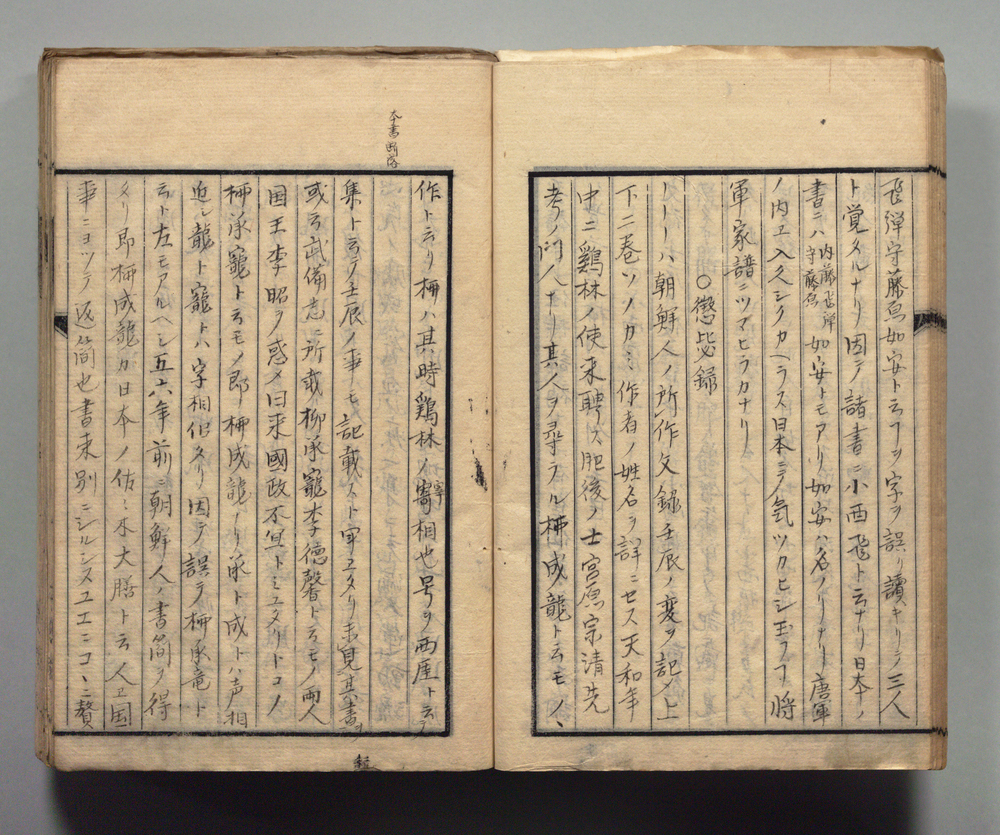 飛弾守藤原如安ト云フヿヲ字ヲ誤リ讀キリテ三人
ト覚タルナリ因テ諸書ニ小西飛ト云ナリ日本ノ
書ニハ内藤飛弾守藤原如安トモアリ如安ハ名ノリナリ唐軍
ノ内エ入久シクカヘラス日本ニテ気ツカヒシ玉フヿ将
軍家譜ニツマヒラカナリ
〇懲毖録
ハ朝鮮人ノ所作文録壬辰ノ変ヲ記メ上
下二巻ツソノカミ作者ノ姓名ヲ詳ニセス天和年
中ニ鷄林ノ使来聘ス肥後ノ士宮原宗清先
考ノ門人ナリ其人ヲ尋ラル柳成龍ト云モノヽ
本書断落
作ト云リ柳ハ其時鷄林ノ宰相也号ヲ西厓ト云テ
集ト云テ壬辰ノ事トモ記載スト申エタリ未見其書ヲ
或云武備志ニ所載柳承寵李徳馨ト云モノ両人
国王李昭ヲ惑メ曰来國政不宜トミエタリトコノ
柳承寵ト云モノ即柳成龍ナリ承ト成トハ声相
近シ龍ト寵トハ字相似タリ因テ誤テ柳承竜ト
云ト左モアルヘシ五六年前ニ朝鮮人ノ書簡ヲ得
タリ即柳成龍カ日本ノ佐々木大膳ト云人エ国
事ニヨツテ返簡也書来別ニシルシスユエニコヽニ贅